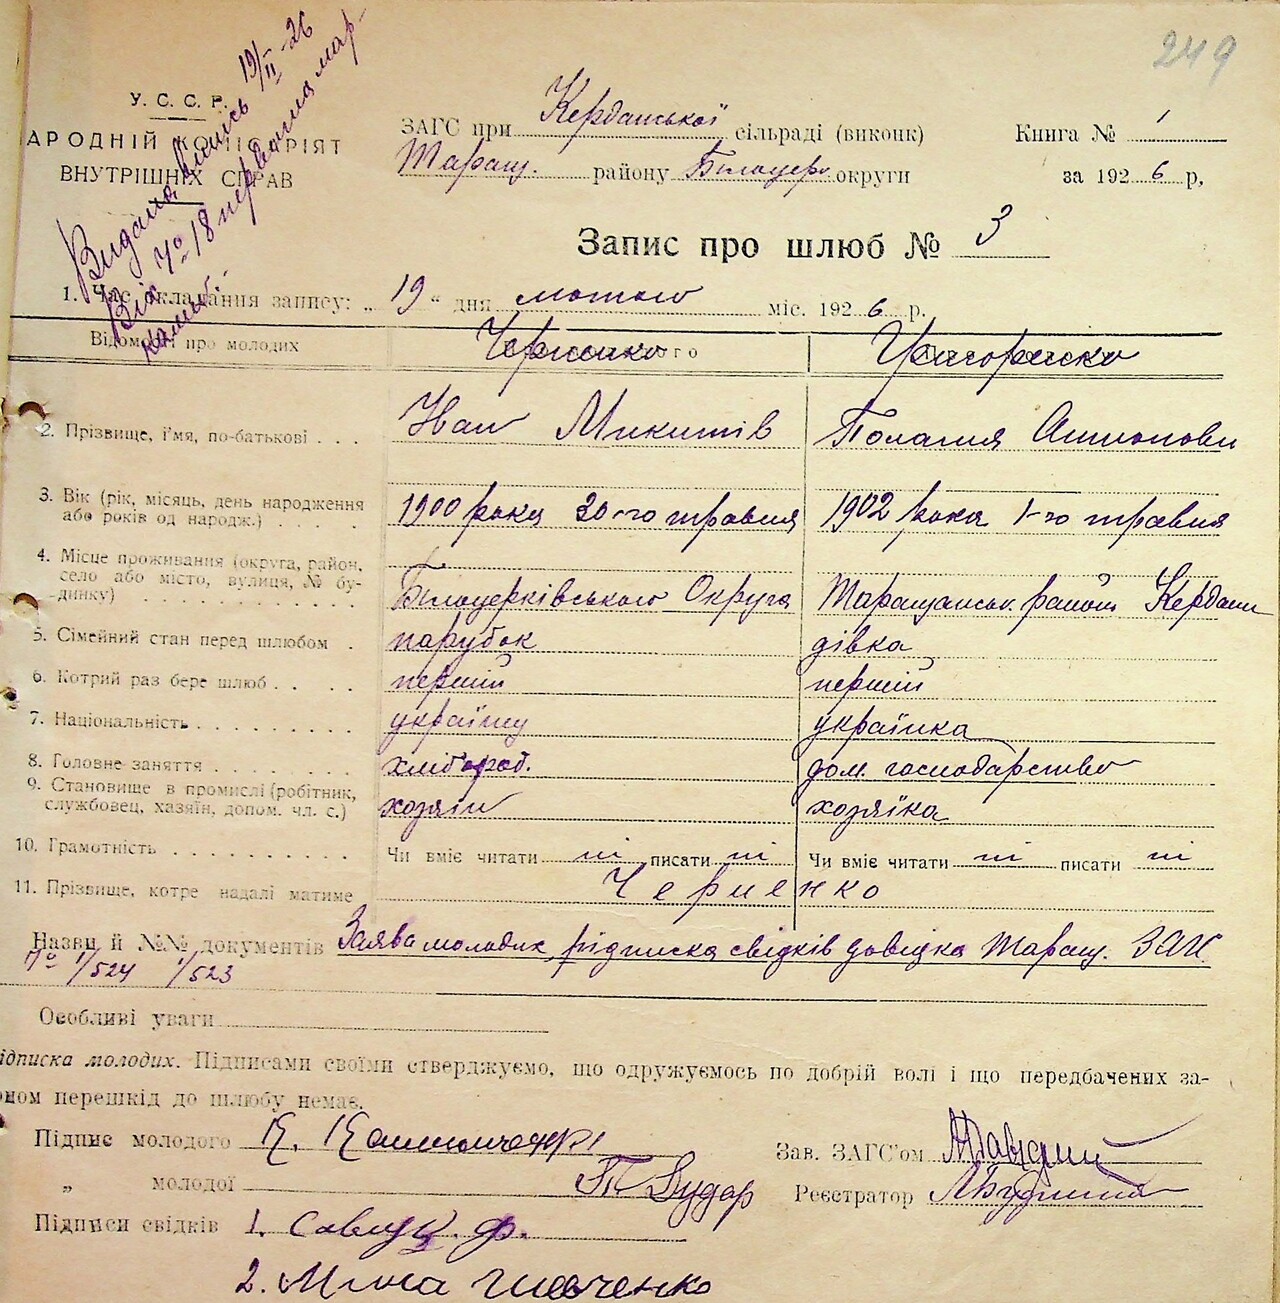 249
У. С. С. Р.
АРОДНІЙ КОМІСАРІЯТ
ВНУТРІШНІХ СПРАВ
Видана випись 19/II-26
Віх № 18 первашна мар
ЗАГС при Керданської сільраді (виконк)
Таращ. району Білоцерк. округи
Книга № 1
за 1926 р,
Запис про шлюб № 3
1. Час складання запису: „19“ дня лютого міс. 1926 р.
Відомості про молодих
Черненко
Григоренко
2. Прізвище, ім'я, по-батькові . . . Іван Микитів Полагия Антонови
3. Вік (рік, місяць, день народження
або років од народж.) . . . . 1900 рока 20-го травня 1902 рока 1-го травня
4. Місце проживання (округа, район,
село або місто, вулиця, № бу-
динку) . . . . . . . . . . Білоцерківського Округа Таращанськ. район Кердани
5. Сімейний стан перед шлюбом . парубок дівка
6. Котрий раз бере шлюб . . . . перший перший
7. Національність . . . . . . . . україн українка
8. Головне заняття . . . . . . . хлібороб. дом. господарство
9. Становище в промислі (робітник,
службовец, хазяїн, допом. чл. с.) хозяїн хозяїка
10. Грамотність . . . . . . . . . Чи вміє читати ні писати ні Чи вміє читати ні писати ні
11. Прізвище, котре надалі матиме Черненко
Назви й №№ документів Заява молодих, підписка свідків довідка Таращ. ЗАГС
№ 1/524 1/523
Особливі уваги
ідписка молодих. Підписами своїми стверджуємо, що одружуємось по добрій волі і що передбачених за-
оном перешкід до шлюбу немає.
Підпис молодого
„ молодої П Дудар
Зав. ЗАГС'ом
Реєстратор
Підписи свідків 1. Савлук. ф.
2. Мина Шевченко